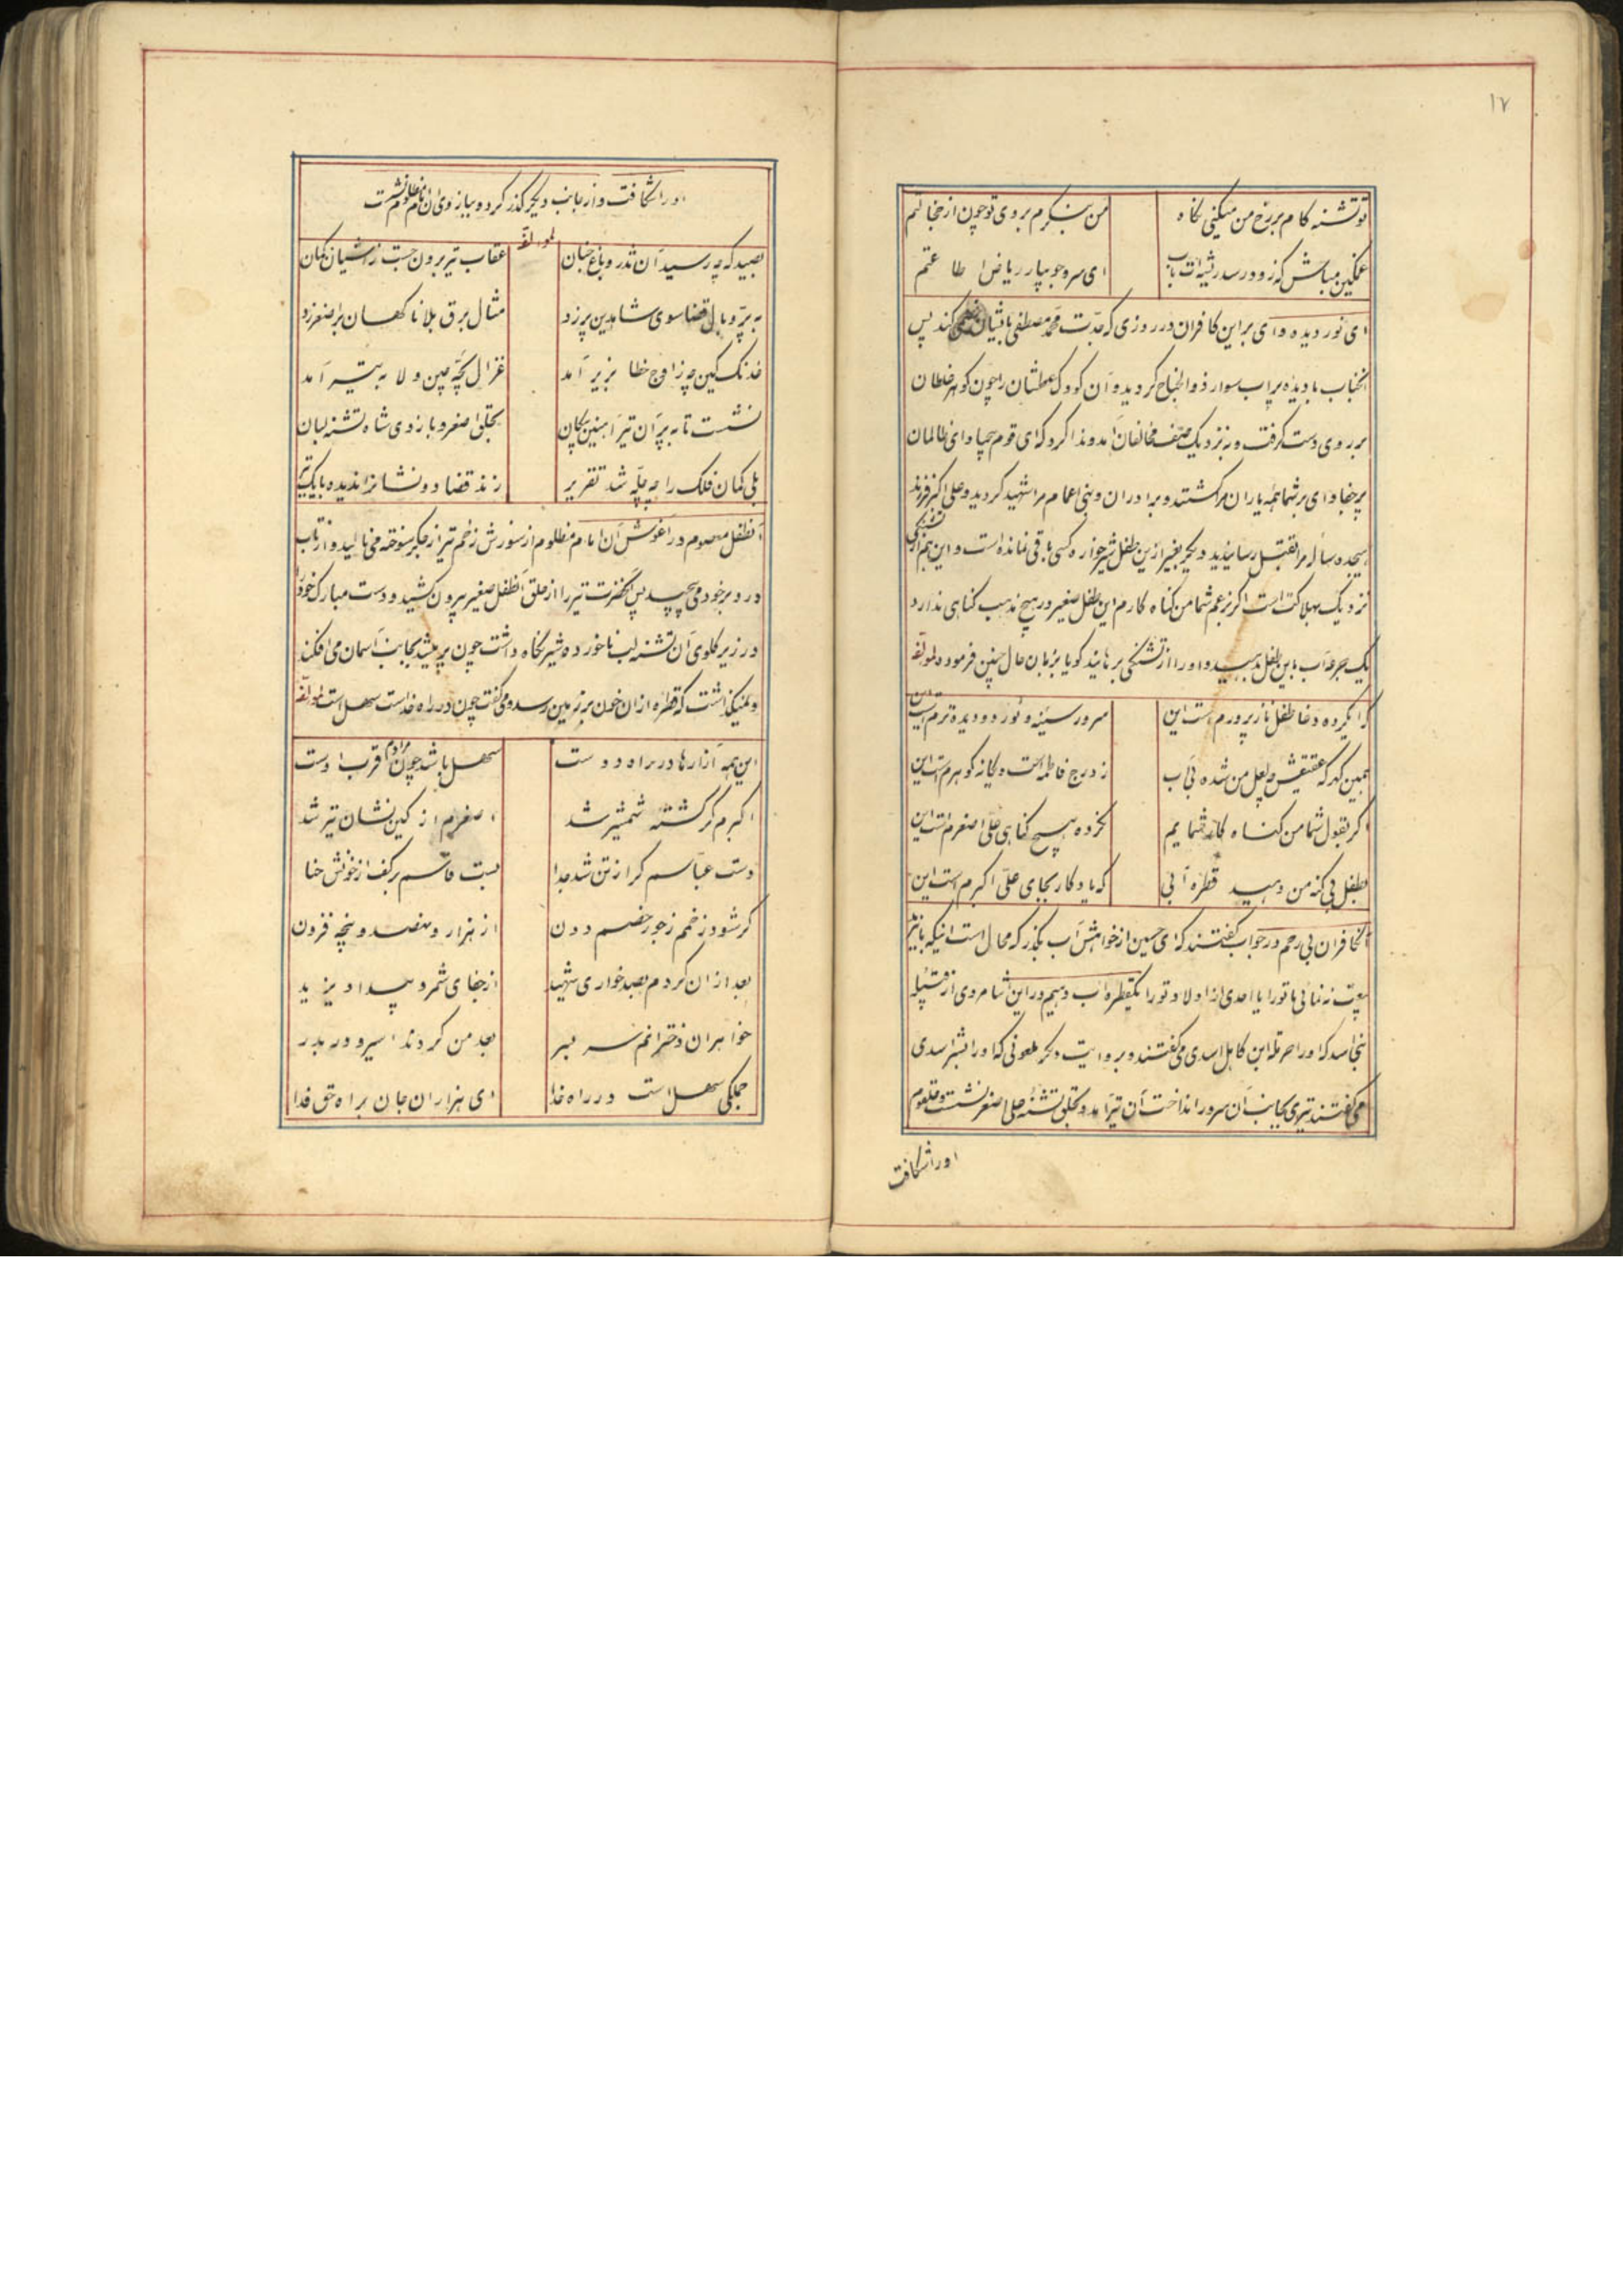 ۱۷
تو تشنه کام بر رخ من میکنی نگاه
من ننگرم بروی تو چون از خجالتم
غمگین مباش که زود رسد
ای سرو جویبار ریاض اطاعتم
ای نور دیده وای بر این کافران در روزی که جدّت محمّد مصطفی باایشان خصمی کند پس
انجناب بادیده پراب سوار ذوالجناح کردید و آن کودک عطشان را چون کوهر غلطان
بر روی دست کرفت و به نزدیک صف مخالفان آمد و ندا کرد که ای قوم بیحیا و ای ظالمان
پر جفا وای بر شما همه یاران مرا کشتند و برادران و بنی اعمام مرا شهید کردید و علی اکبر فرزند
هیجده ساله مرا بقتل رسانیدید دیگر بغیر ازین طفل شیرخواره کسی باقی نمانده است و این هم از تشنگی
نزدیک بهلاکت است اگر بزعم شما من کناه کارم این طفل صغیر در هیچ مذهب کناهی ندارد
یک جرعه آب باین طفل بدهید و او را از تشنگی برهانید کویا بزبان حال چنین فرموده لمولفه
طفل نازپرورم است این
سرور سینه و نور دو دیده ترم است این
همین کهر که عقیقش چو لعل من شده بی آب
ز درج فاطمه است و یکانه کوهرم است این
اگر بقول شما من کناه کار شمایم
نکرده هیچ کناهی علی اصغرم است این
بطفل بی کنه من دهید قطره آبی
که یادکار بجای علی اکبرم است این
آنکافران بی رحم در جواب گفتند که ای حسین از خواهش آب بگذر که محال است اینکه با یزید
بیعت نه نمائی ما تو را یا احدی از اولاد تو را یکقطره آب دهیم در این اثنا مردی از قبیله
بنی اسد که او را حرمله ابن کاهل اسدی می گفتند و بروایت دیگر ملعونی که او را بشر اسدی
می گفتند تیری بجانب آن سرور انداخت آن تیر آمد و بحلق تشنه علی اصغر نشست و حلقوم
اورا شکافت
اورا شکافت و از جانب دیگر گذر کرده و ببازوی ان امام مظلوم نشست
لمولفه
بصید که چه رسید آن تذرو باغ جنان
عقاب تیر برون جست ز اشیان کمان
به پرّ و بال قضا سوی شاهدین پر زد
مثال برق بلا ناکهان بر اصغر زد
خدنک کین چو ز اوج خطا بزیر آمد
غزال بچّه چین ولا به تیر آمد
نشست تا به پر آن تیر آهنین پیکان
بحلق اصغر و بازوی شاه تشنه لبان
بلی کمان فلک را چو چلّه شد تقریر
زند قضا دو نشانرا ندیده بایک تیر
آنطفل معصوم در آغوش آن امام مظلوم از سوزش زخم تیر از جگر سوخته می نالید و از تاب
درد بر خود می پیچید پس آنحضرت تیر را از حلق آنطفل صغیر بیرون کشید و دست مبارک خود را
در زیر گلوی آن تشنه لب ناخورده شیر نگاه داشت چون پر میشد بجانب آسمان می افکند
و نمیگذاشت که قطره از ان خون بر زمین رسد و می گفت چون در راه خداست سهل است لمولفه
این همه آزارها در راه دوست
سهل باشد چون مرادم قرب اوست
اکبرم گر کشته شمشیر شد
اصغرم از کین نشان تیر شد
دست عبّاسم گر از تن شد جدا
بست قاسم بر کف از خونش حنا
گر شود زخمم ز جور خصم دون
از هزار و نهصد و پنجه فزون
بعد از ان گردم بصد خواری شهید
از جفای شمر و بیداد یزید
خواهران دخترانم سر بسر
بعد من گردند اسیر و در بدر
جملگی سهل است در راه خدا
ای هزاران جان براه حق فدا